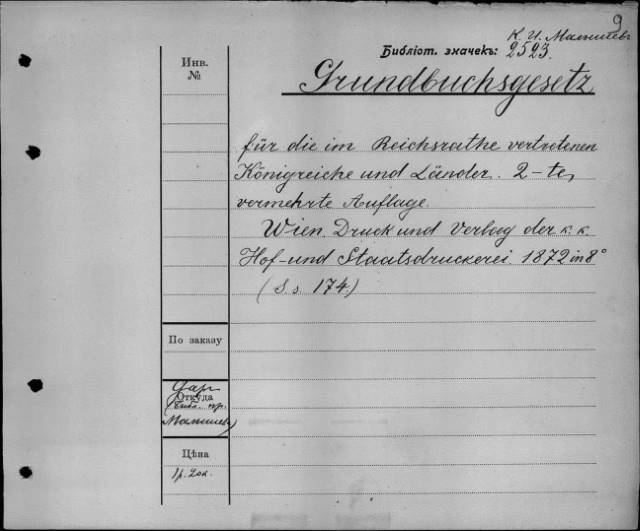 9
К. И. Малышевъ
Библіот. значекъ: 2523.
Инв.
№
Grundbuchsgesetz
für die im Reichsrathe vertretenen
Königreiche und Länder. 2-te,
vermehrte Auflage.
Wien. Druck und Verlag der k. k.
Hof- und Staatsdruckerei 1872 in 8°
(Ss. 174.)
По заказу
Даръ
Откуда
Малышевъ)
Цѣна
1р. 20к.